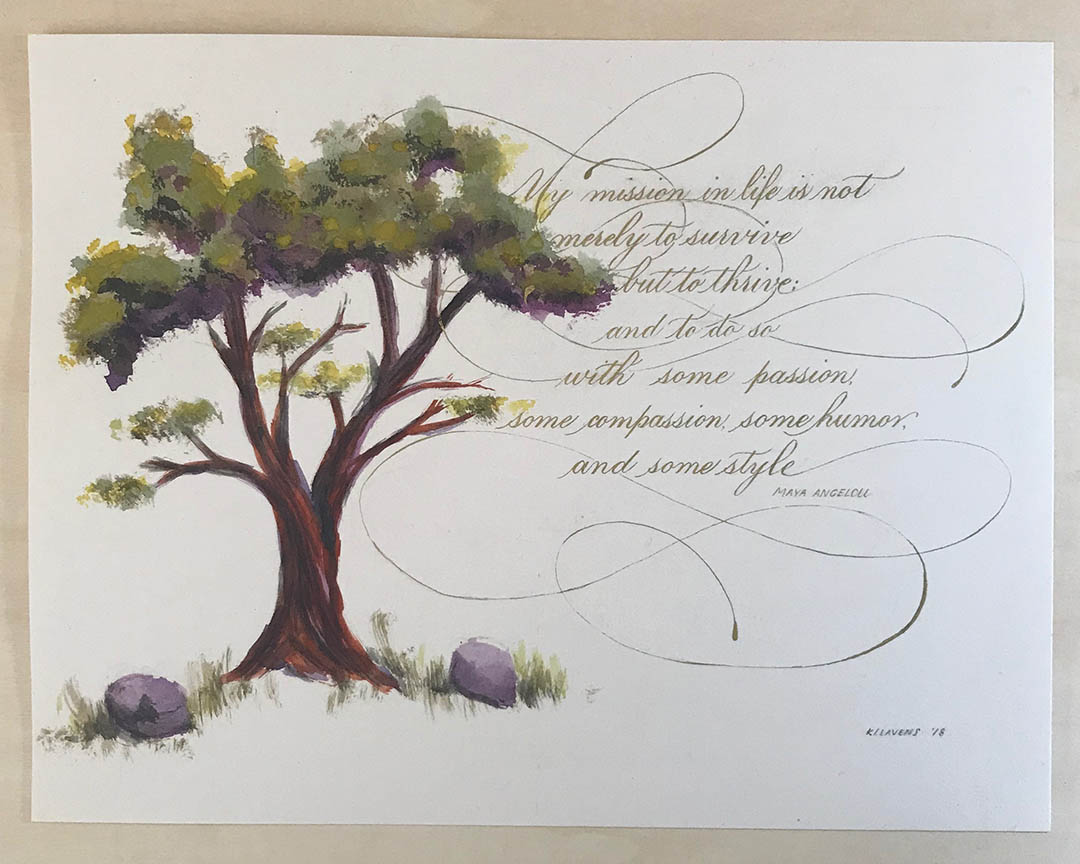 My mission in life is not
merely to survive
but to thrive;
and to do so
with some passion,
some compassion, some humor,
and some style
MAYA ANGELOU
K. LAVENS '18